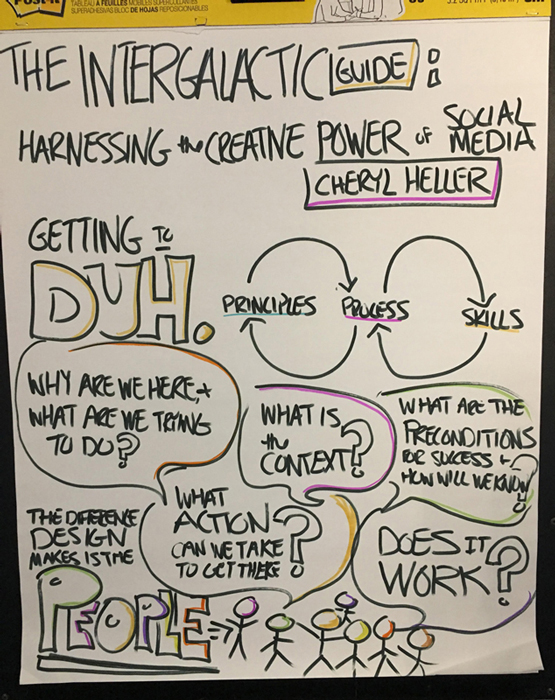 TABLEAU À FEUILLES MOBILES SUPERCOLLANTES
SUPERADHESIVAS BLOC DE HOJAS REPOSICIONABLES
THE INTERGALACTIC GUIDE:
HARNESSING the CREATIVE POWER OF SOCIAL MEDIA
CHERYL HELLER
GETTING TO
DUH.
PRINCIPLES PROCESS SKILLS
WHY ARE WE HERE, +
WHAT ARE WE TRYING
TO DO?
WHAT IS
the
CONTEXT?
WHAT ARE THE
PRECONDITIONS
FOR SUCCESS +
HOW WILL WE KNOW?
WHAT
ACTION
CAN WE TAKE
TO GET THERE?
DOES IT
WORK?
THE DIFFERENCE
DESIGN
MAKES IS THE
PEOPLE